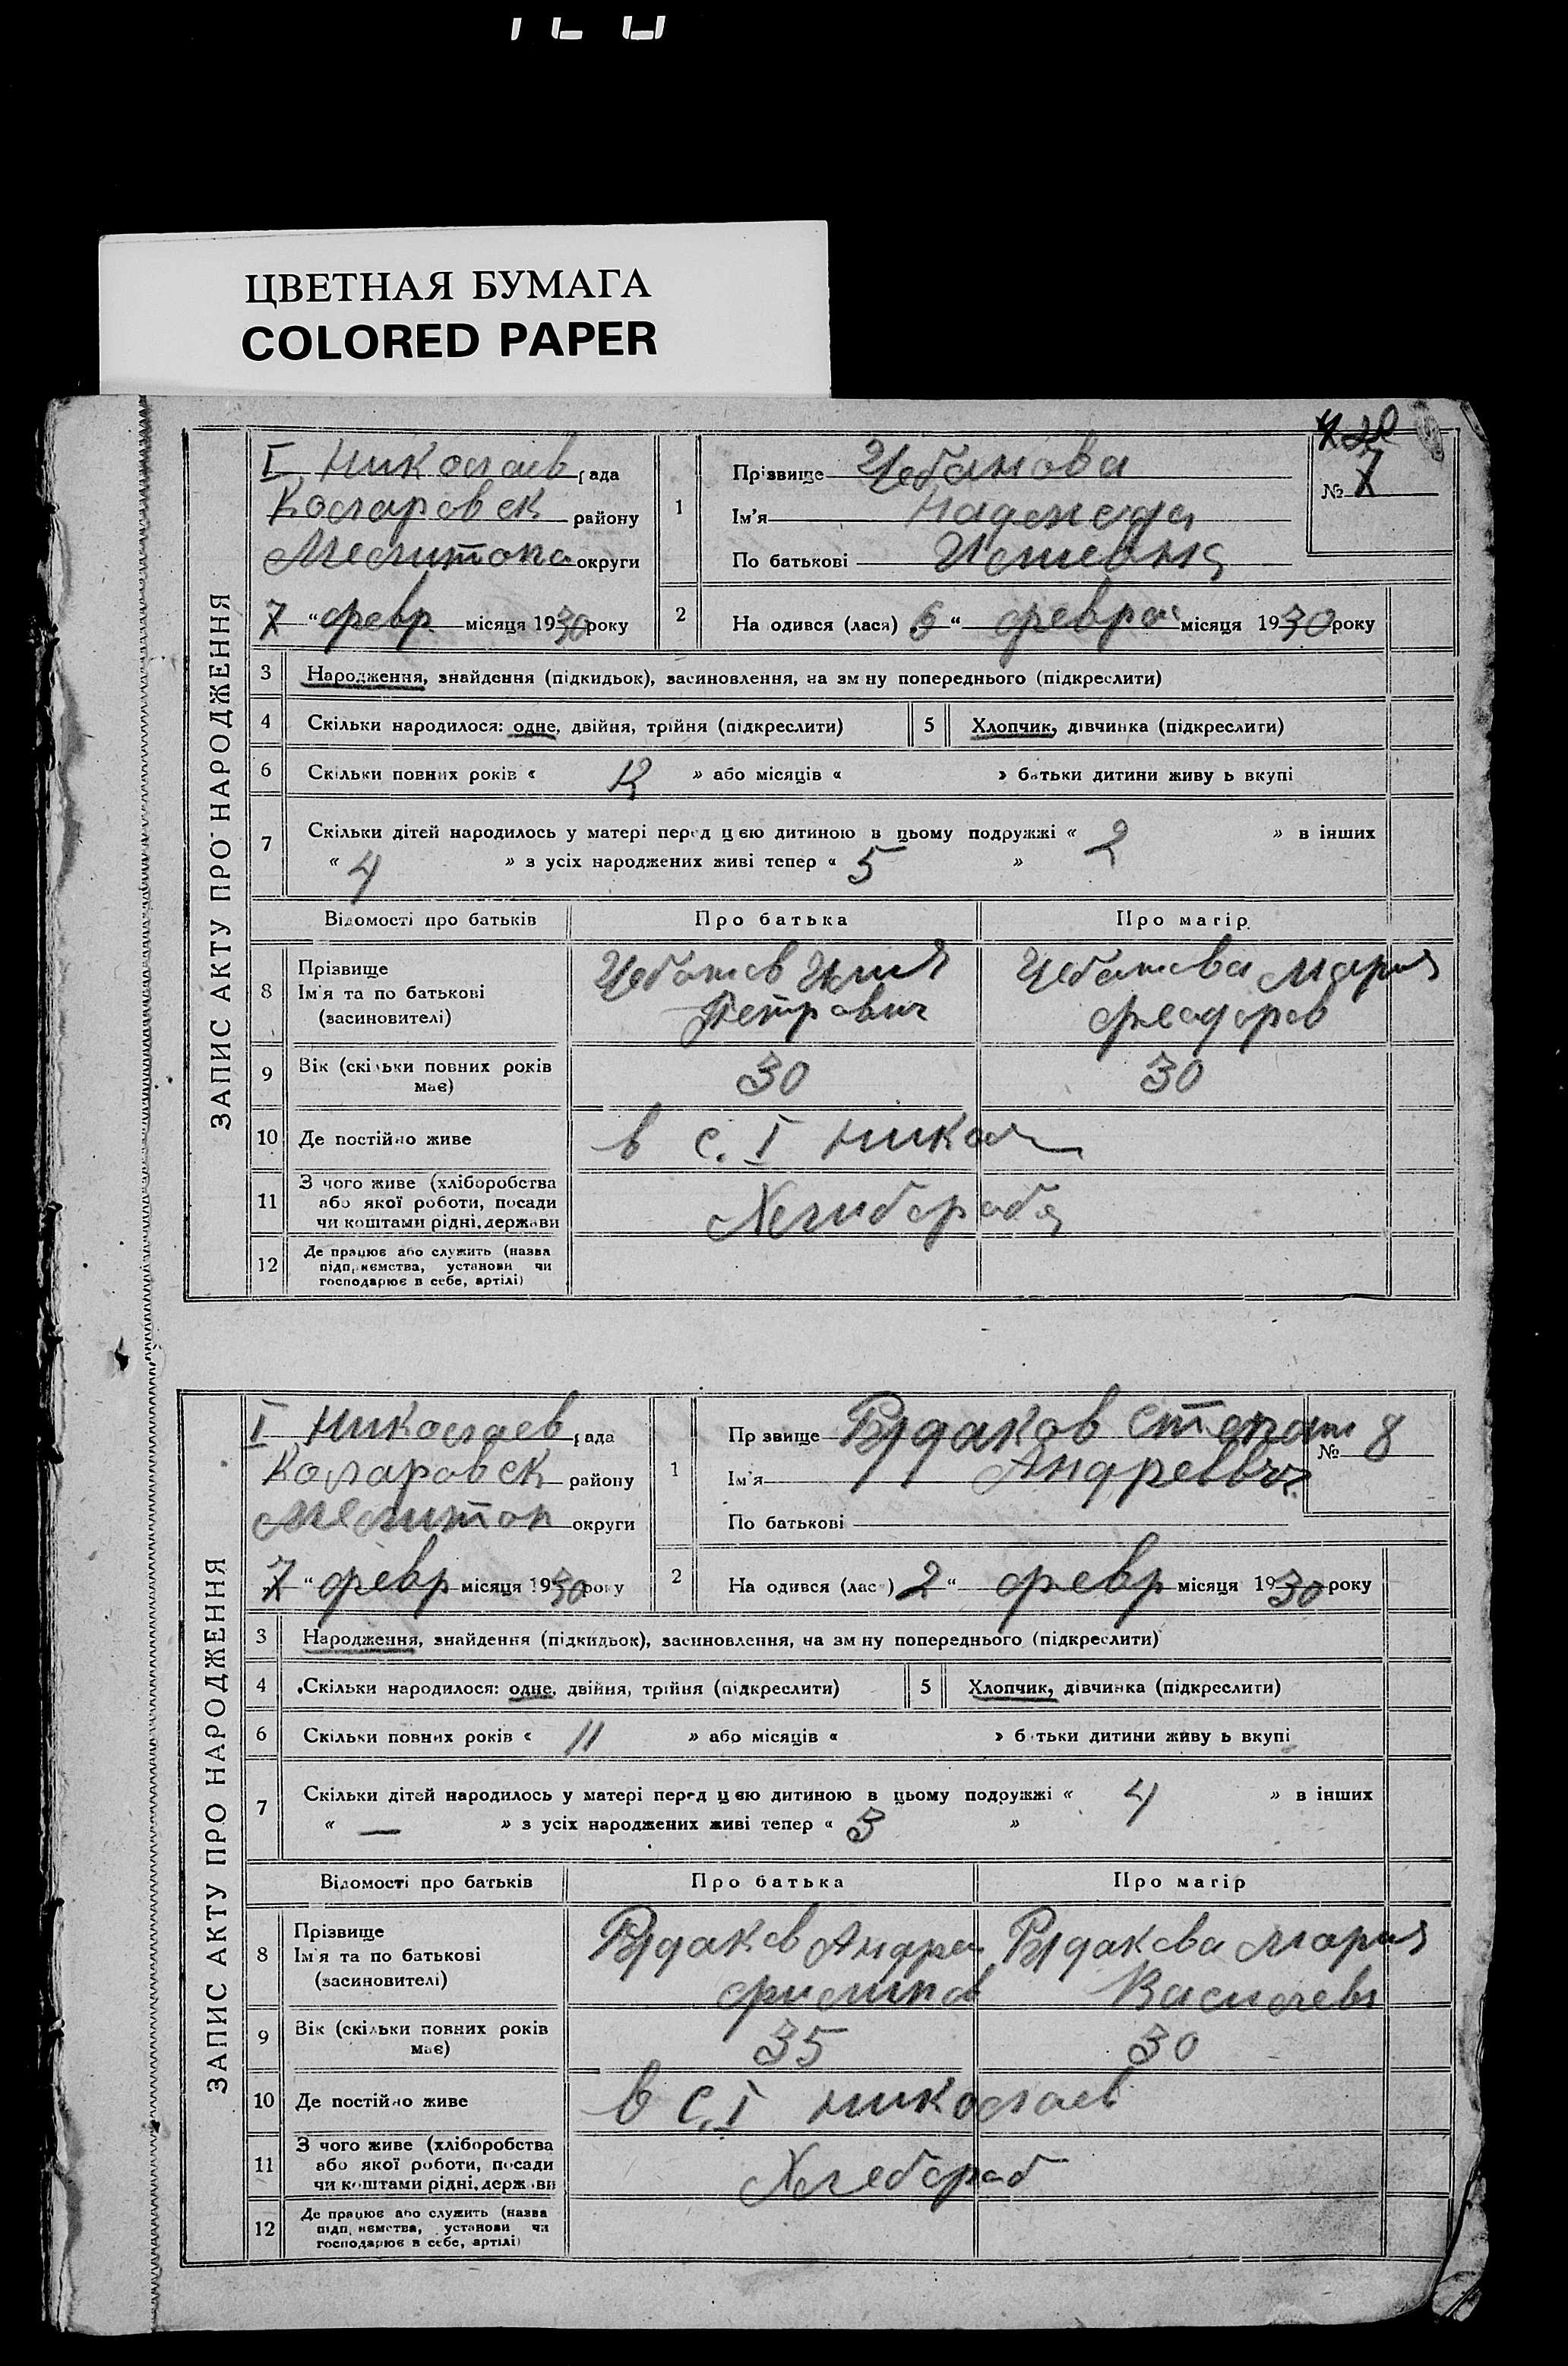 ЦВЕТНАЯ БУМАГА
COLORED PAPER
ЗАПИС АКТУ ПРО НАРОДЖЕННЯ
I Николаев рада
Коларовск району
Мелитопо округи
7 " февр місяця 1930 року
№ 7
1 Прізвище Чебанова
Ім'я Надежда
По батькові
2 На одився (лася) 6 " февра місяця 1930 року
3 Народження, знайдення (підкидьок), засиновлення, на зм ну попереднього (підкреслити)
4 Скільки народилося: одне, двійня, трійня (підкреслити) 5 Хлопчик, дівчинка (підкреслити)
6 Скільки повних років « » або місяців « » батьки дитини живу ь вкупі
7 Скільки дітей народилось у матері перед цею дитиною в цьому подружжі « 2 » в інших
« 4 » з усіх народжених живі тепер « 5 »
Відомості про батьків Про батька Про матір
8 Прізвище Ім'я та по батькові (засиновителі) Чебанов Илия Петрович Чебанова Мария Феодоров
9 Вік (скільки повних років має) 30 30
10 Де постійно живе в с. I Никол
11 З чого живе (хліборобства або якої роботи, посади чи коштами рідні, держави Хлиборob
12 Де працює або служить (назва підприємства, установи чи господарює в себе, артілі)
ЗАПИС АКТУ ПРО НАРОДЖЕННЯ
I Николаев рада
Коларовск району
Мелитоп округи
7 " февр місяця 1930 року
№ 8
1 Пр звище Рудаков Степан
Ім'я Андреевич
По батькові
2 На одився (лася) 2 " февр місяця 1930 року
3 Народження, знайдення (підкидьок), засиновлення, на зм ну попереднього (підкреслити)
4 Скільки народилося: одне, двійня, трійня (підкреслити) 5 Хлопчик, дівчинка (підкреслити)
6 Скільки повних років « 11 » або місяців « » батьки дитини живу ь вкупі
7 Скільки дітей народилось у матері перед цею дитиною в цьому подружжі « 4 » в інших
« — » з усіх народжених живі тепер « 3 »
Відомості про батьків Про батька Про матір
8 Прізвище Ім'я та по батькові (засиновителі) Рудаков Андрей Филипов Рудакова Мария Василев
9 Вік (скільки повних років має) 35 30
10 Де постійно живе в с. I Николаев
11 З чого живе (хліборобства або якої роботи, посади чи коштами рідні, держави Хлебораб
12 Де працює або служить (назва підприємства, установи чи господарює в себе, артілі)